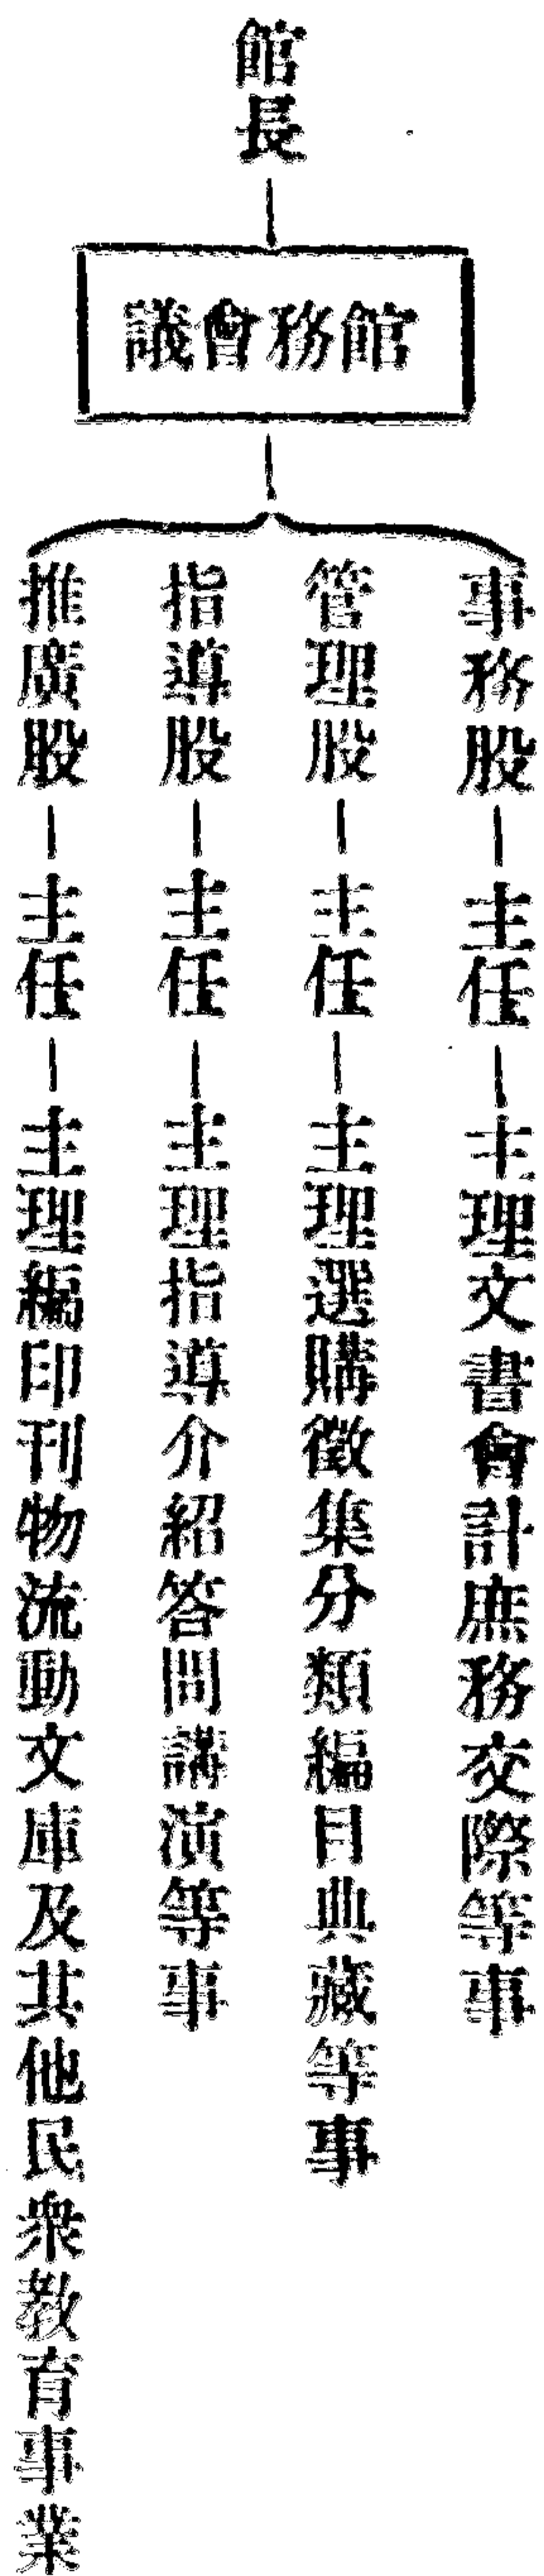 館長
館務會議
事務股—主任—主理文書會計庶務交際等事
管理股—主任—主理選購徵集分類編目典藏等事
指導股—主任—主理指導介紹答問講演等事
推廣股—主任—主理編印刊物流動文庫及其他民衆教育事業